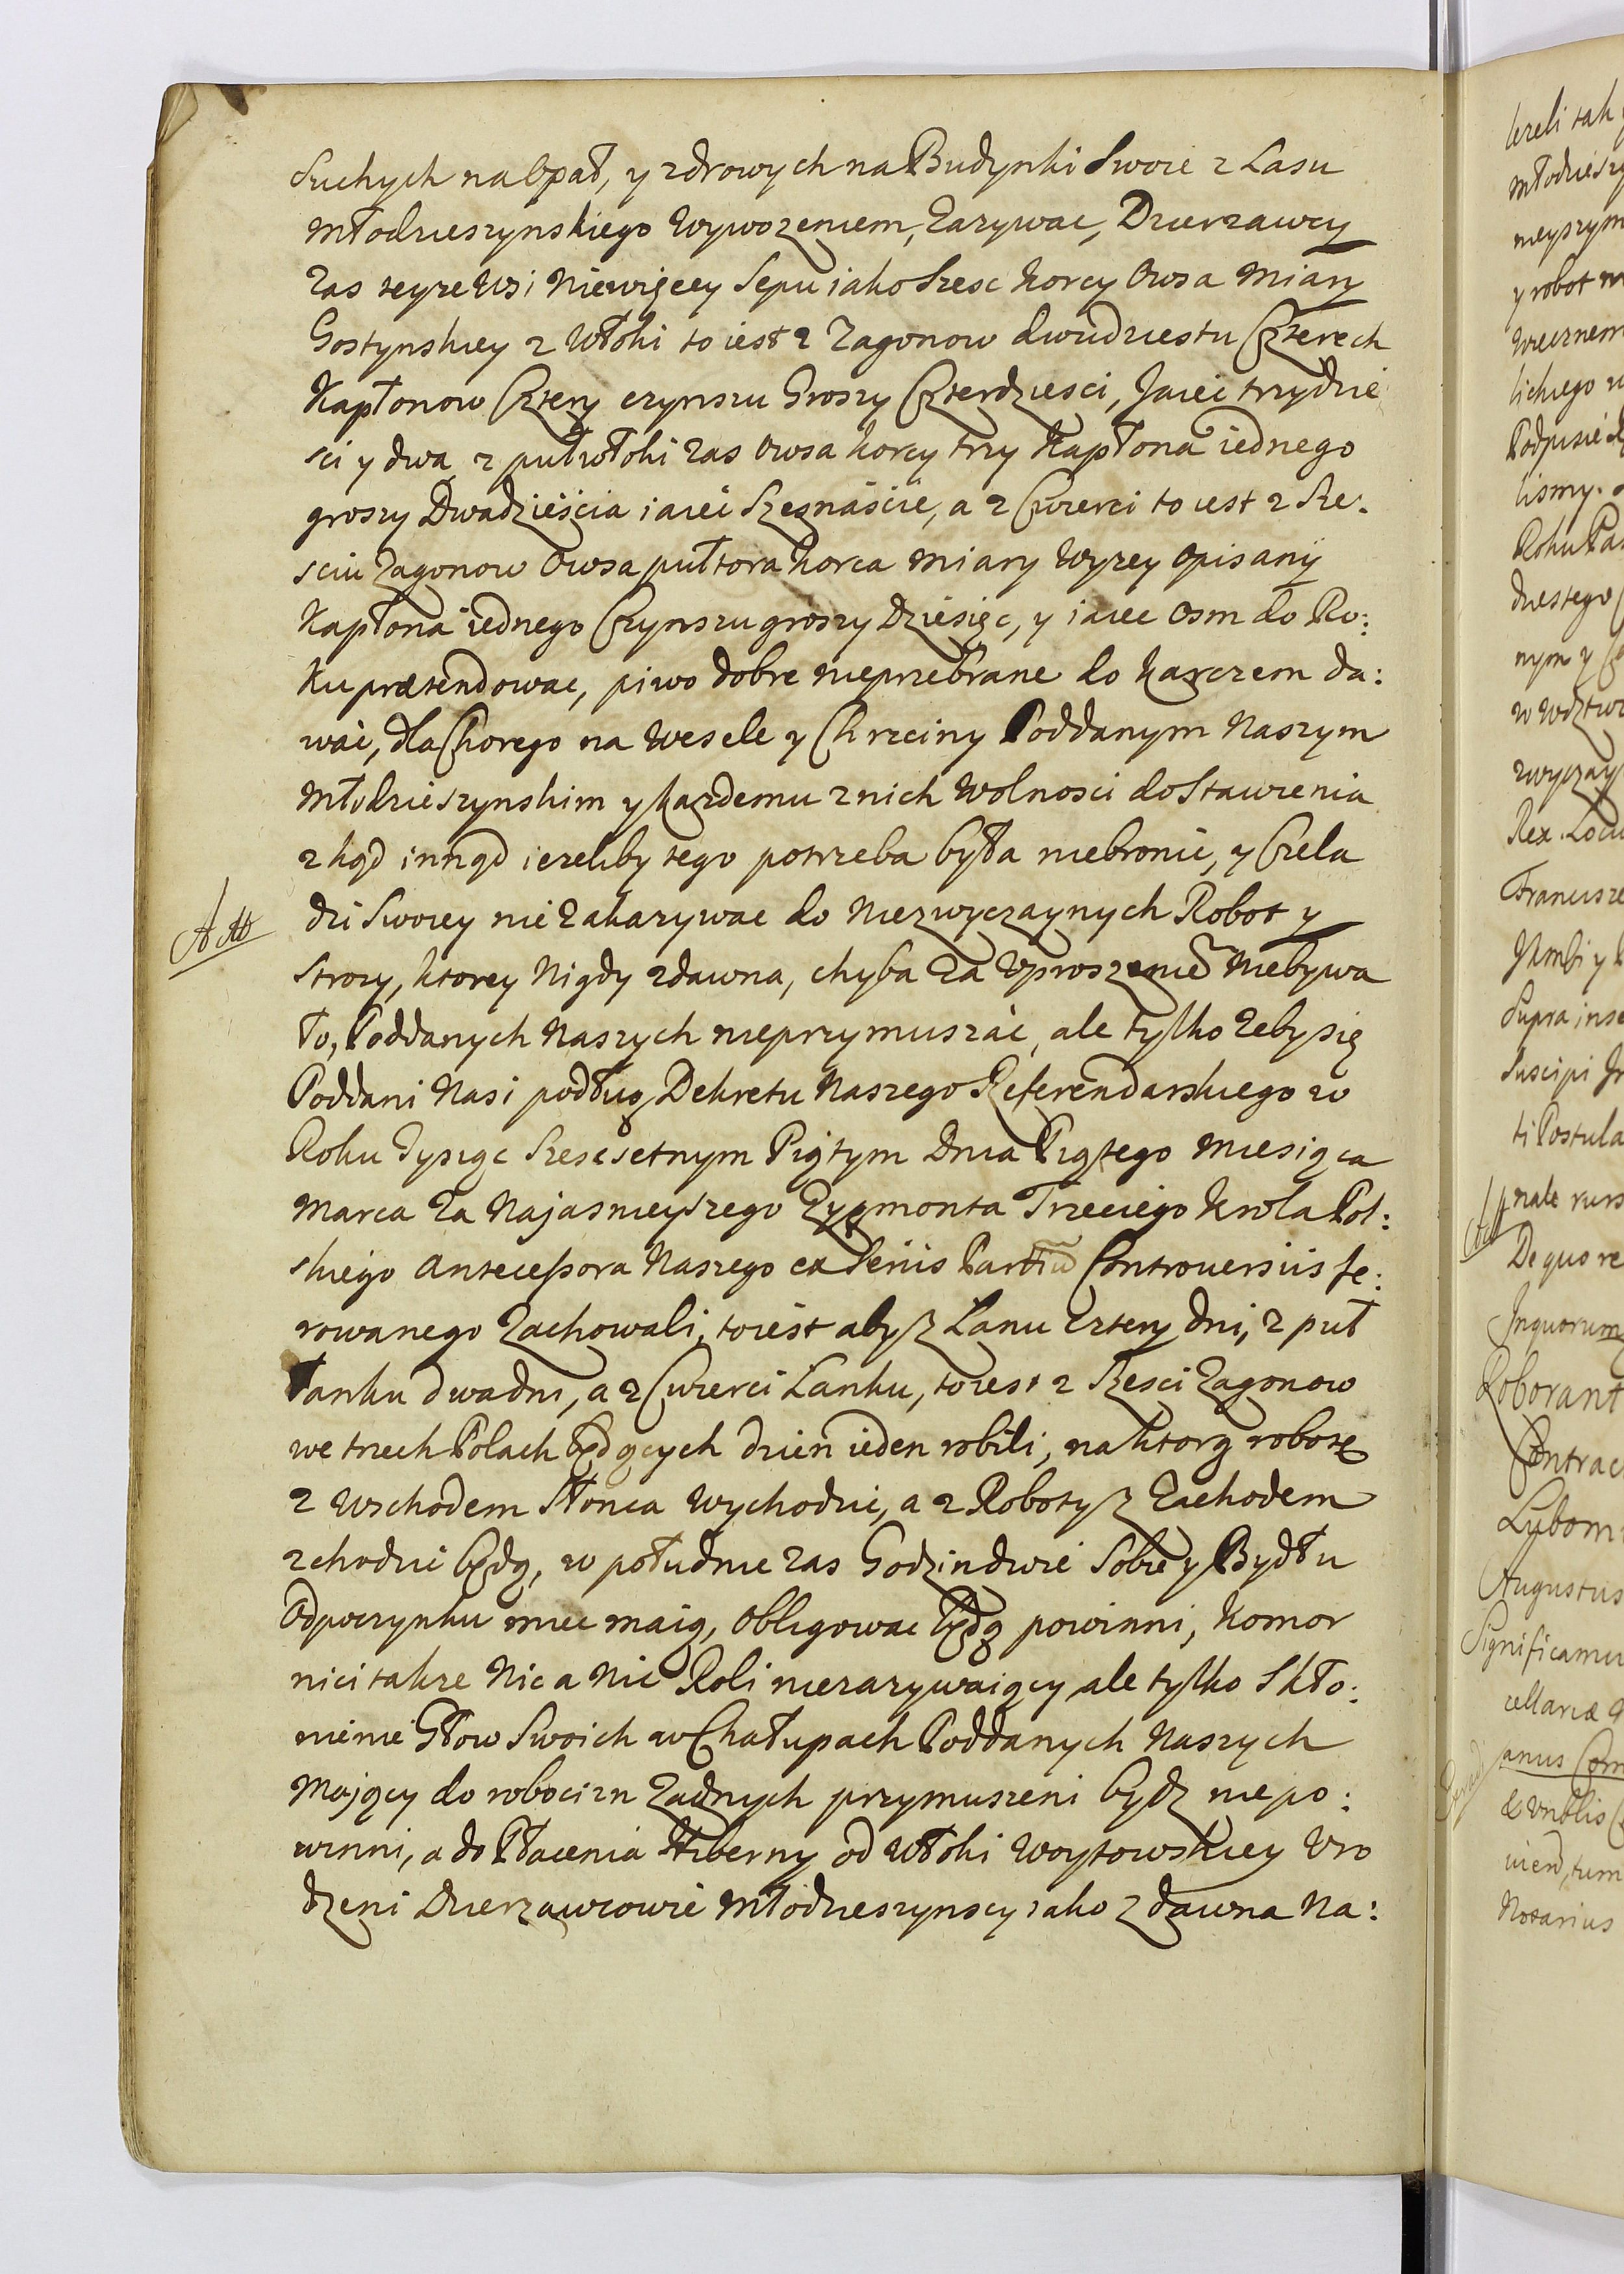 Suchych na Opał, y zdrowych na Budynki Swoie z Lasu
Młodzieszynskiego Wywozeniem, Zazywac, Dzierzawcy
zas teyze Wsi Niewięcey Sepu iako Szesc korcy Owsa Miary
Gostynskiey z Włoki to iest z Zagonow dwudziestu Czterech
Kapłonow Cztery czynszu Groszy Czterdziesci, Jaiec trzydzie
sci y dwa, z pułwłoki zas Owsa korcy trzy Kapłona iednego
groszy Dwadzieścia iaiec Szesnaście, a z Cwierci to iest z Sze:
sciu Zagonow Owsa pułtora korca miary Wyzey Opisany
Kapłona iednego Czynszu groszy Dziesięc, y iaiec Osm do Ro:
ku prætendowac, piwo dobre nieprzebrane do karczem da:
wać, dla Chorego na Wesele y Chrzciny Poddanym Naszym
Młodzieszynskim y kazdemu z nich Wolnosci do Stawienia
z kąd inąd iezeliby tego potrzeba była niebronic, y Czela
dzi Swoiey nie Zakazywac do Niezwyczaynych Robot y
Strozy, ktorey Nigdy zdawna, chyba Za Uproszeniē Niebywa
ło, Poddanych Naszych nieprzymuszać, ale tylko zeby się
Poddani Nasi podług Dekretu Naszego Referendarskiego w
Roku Tysiąc Szescsetnym Piątym Dnia Piątego Miesiąca
Marca Za Najasnieyszego Zygmonta Trzeciego Krola Pol:
skiego Antecessora Naszego ex Seriis Partiū Controversiis fe:
rowanego Zachowali, toiest aby z Łanu Cztery dni, z puł
Łanku dwa dni, a z Cwierci Łanku, toiest z Szesci Zagonow
we trzech Polach będących dzień ieden robili, na ktorą robotę
z Wschodem Słonca Wychodzic, a z Roboty z Zachodem
zchodzic będą, w południe zas Godzin dwie Sobie y Bydłu
Odpoczynku miec maią, Obligowac będą powinni, Komor
nici takze Nic a Nic Roli niezazywaiący ale tylko Skło:
nienie Głow Swoich w Chałupach Poddanych Naszych
Mający do robocizn Zadnych przymuszeni bydz niepo:
winni, a do Płacenia Hiberny od Włoki Woytowskiey Uro
dzeni Dzierzawcowie Młodzieszynscy iako z dawna Na: